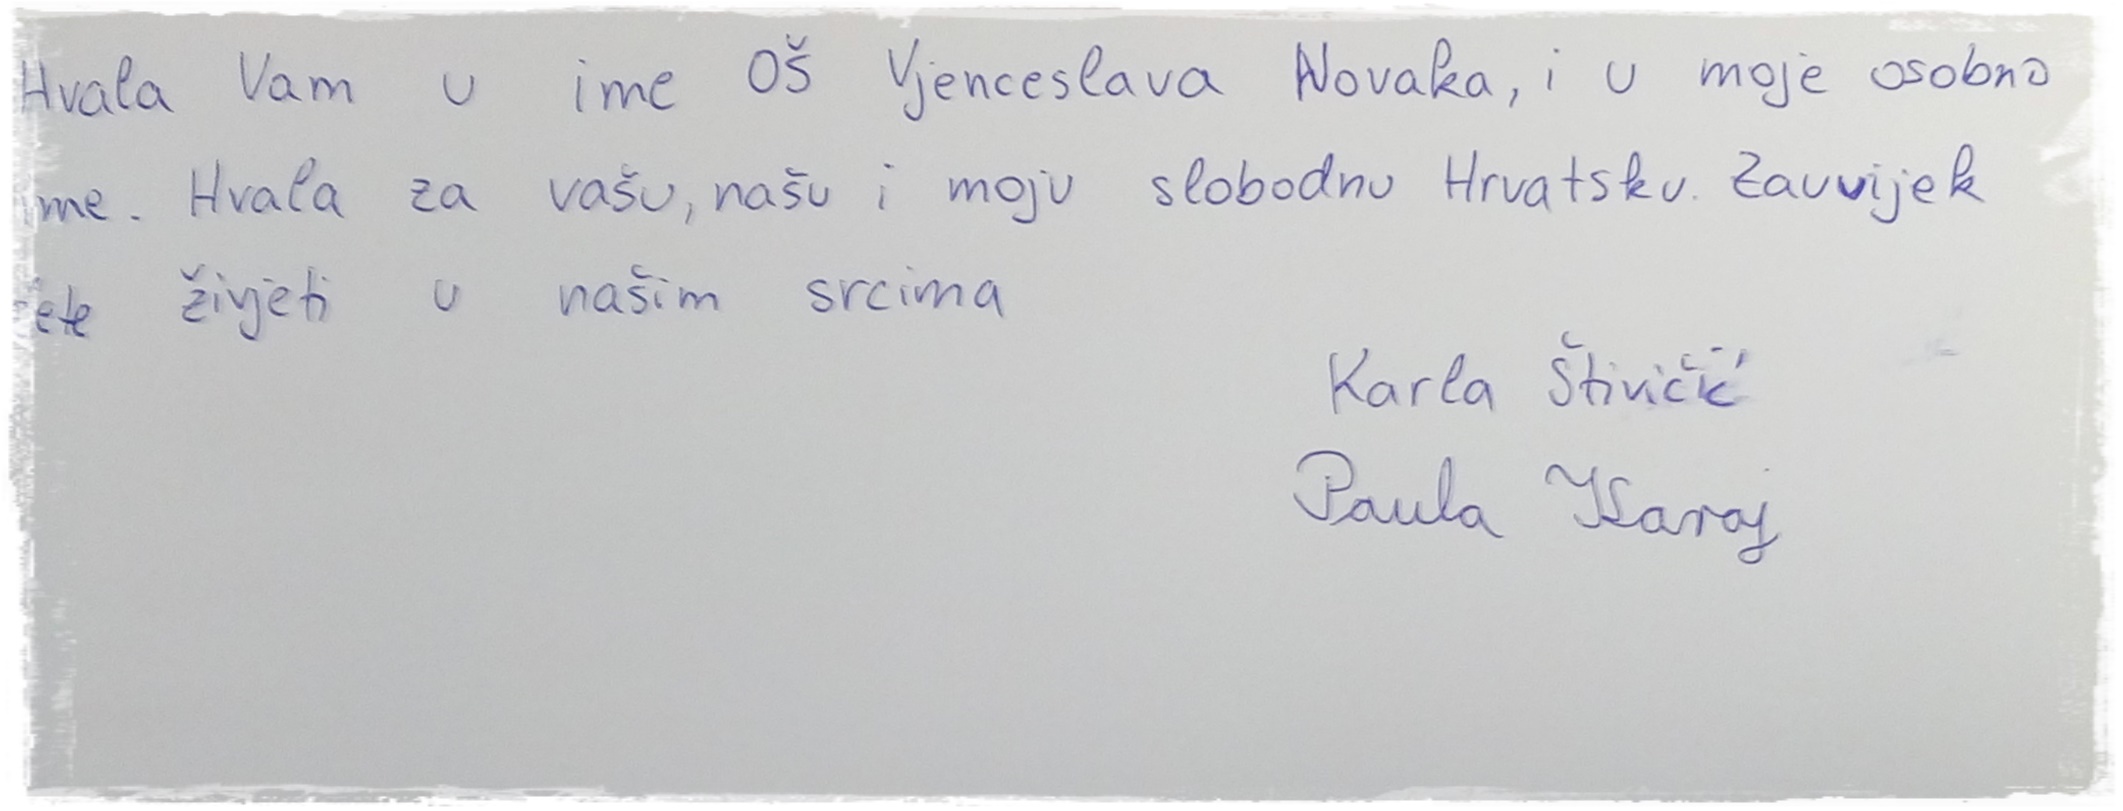 Hvala Vam u ime OŠ Vjenceslava Novaka, i u moje osobno
ime. Hvala za vašu, našu i moju slobodnu Hrvatsku. Zauvijek
ćete živjeti u našim srcima
Karla Štivičić
Paula